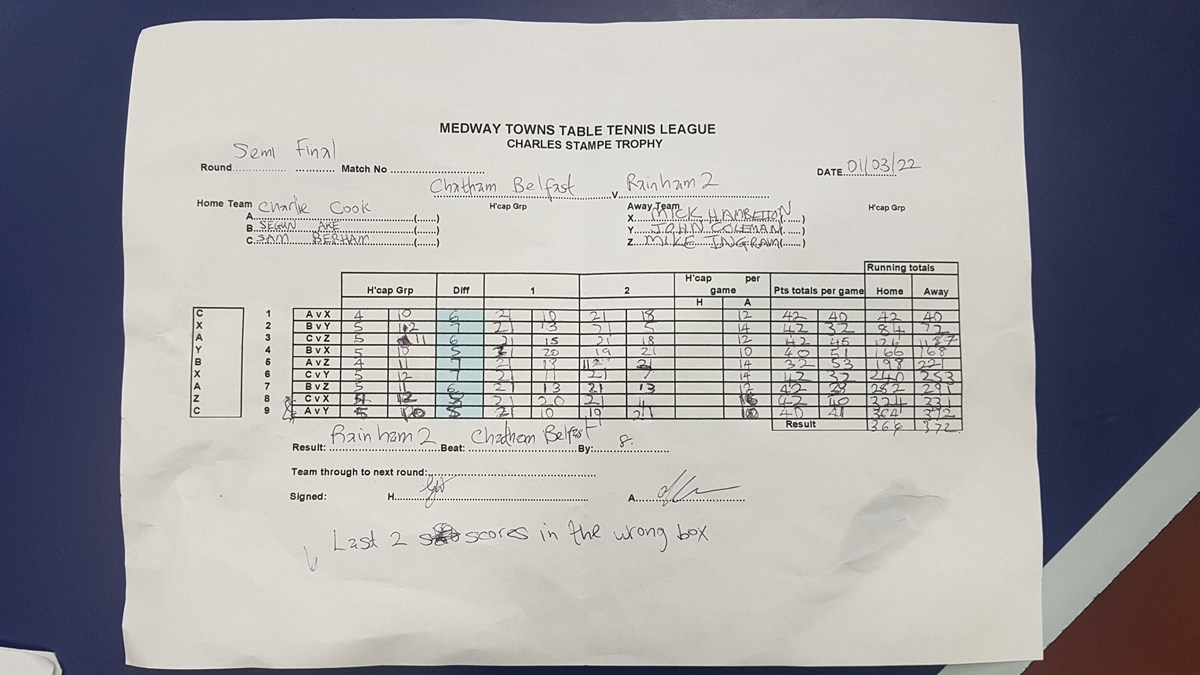 MEDWAY TOWNS TABLE TENNIS LEAGUE
CHARLES STAMPE TROPHY
Round Semi Final Match No DATE 01/03/22
Chatham Belfast V Rainham 2
Home Team H'cap Grp Away Team H'cap Grp
A Charlie Cook (......) X MICK HAMBETTON (......)
B SEGUN AKE (......) Y JOHN COLEMAN (......)
C SAM BERHAM (......) Z MIKE INGRAM (......)
Running totals
H'cap Grp Diff 1 2 H'cap per game Pts totals per game Home Away
H A
C 1 A v X 4 10 6 21 10 21 18 12 42 40 42 40
X 2 B v Y 5 12 7 21 13 21 5 14 42 32 84 72
A 3 C v Z 5 11 6 21 15 21 18 12 42 45 126
Y 4 B v X 5 10 5 20 19 21 10 40 51 166 168
B 5 A v Z 4 11 7 21 14 32 53 198 221
X 6 C v Y 5 12 7 21 11 21 7 14 42 32 240 253
A 7 B v Z 5 11 6 21 13 21 13 12 42
Z 8 C v X 21 20 21 42 40 324
C 9 A v Y 21 10 19 21 40 41 364 372
Result 372
Result: Rainham 2 Beat: Chatham Belfast By: 8.
Team through to next round:
Signed: H A
Last 2 scores in the wrong box